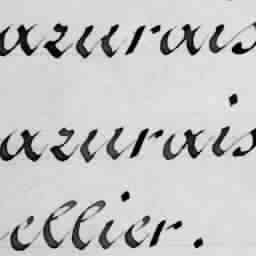 azurais
azurais
ellier.